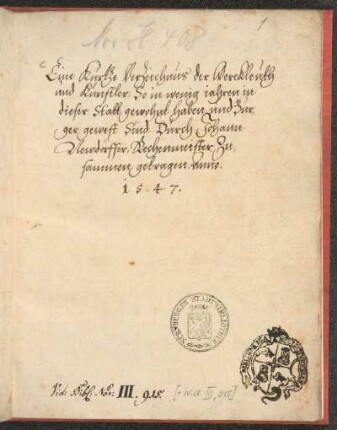 1
Eine Kurtze Verzeichnus der Werckleuth
und Künstler So in wenig iahren in
dieser Statt gewohnt haben und Bur
ger gewest sind Durch Johann
Newdorffer, Rechenmeister, Zu
sammen getragen. Anno.
1 5 4 7.
NÜRNBERGER STADTBIBLIOTHEK
Vid: Bibl. Nor: III. 915.